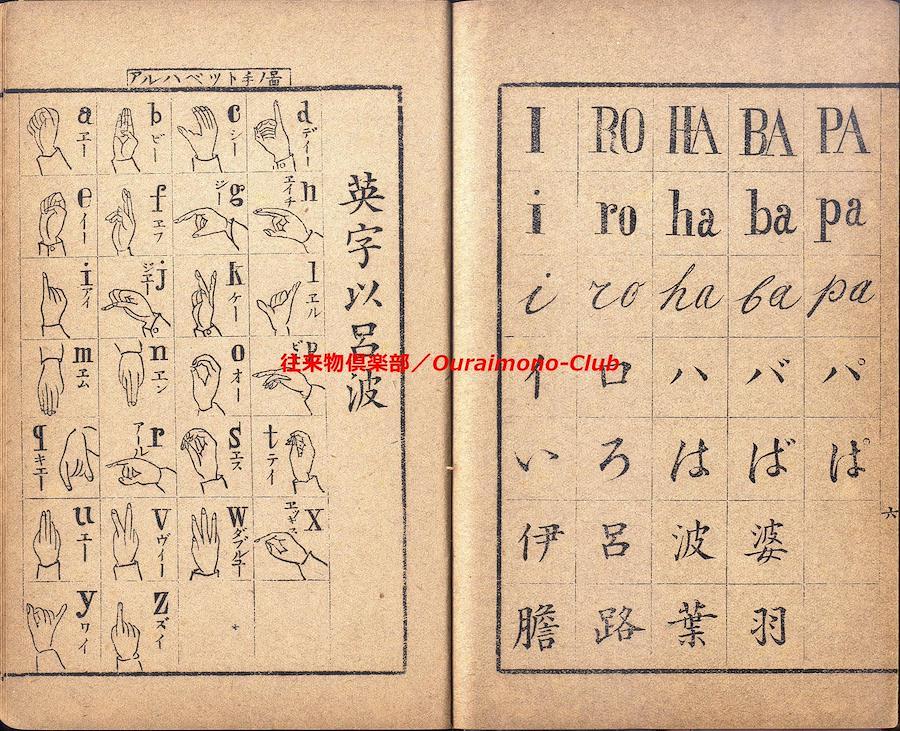 アルハベツト手ノ啚
a ヱー b ビー c シー d ディー
e イー f ヱフ g ジー h ヱイチ
i アイ j ジヱー k ケー l ヱル
m ヱム n ヱン o オー p
q キエー r アール s ヱス t テイ
u ユー v ヴィー w ダブルユー x ヱッキス
y ワイ z ズイ
英字以呂波
I RO HA BA PA
i ro ha ba pa
i ro ha ba pa
イ ロ ハ バ パ
い ろ は ば ぱ
伊 呂 波 婆
膽 路 葉 羽
六
往来物倶楽部／Ouraimono-Club